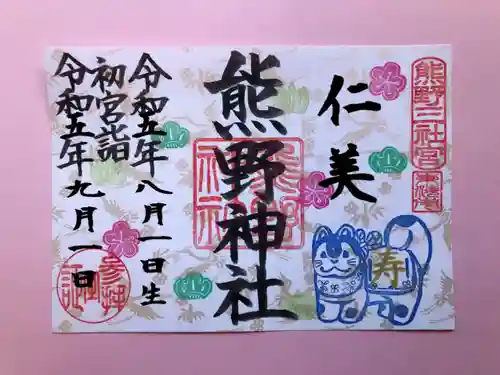 熊野三社宮
仁美
寿
熊野神社
令和五年八月一日生
初宮詣
令和五年九月一日